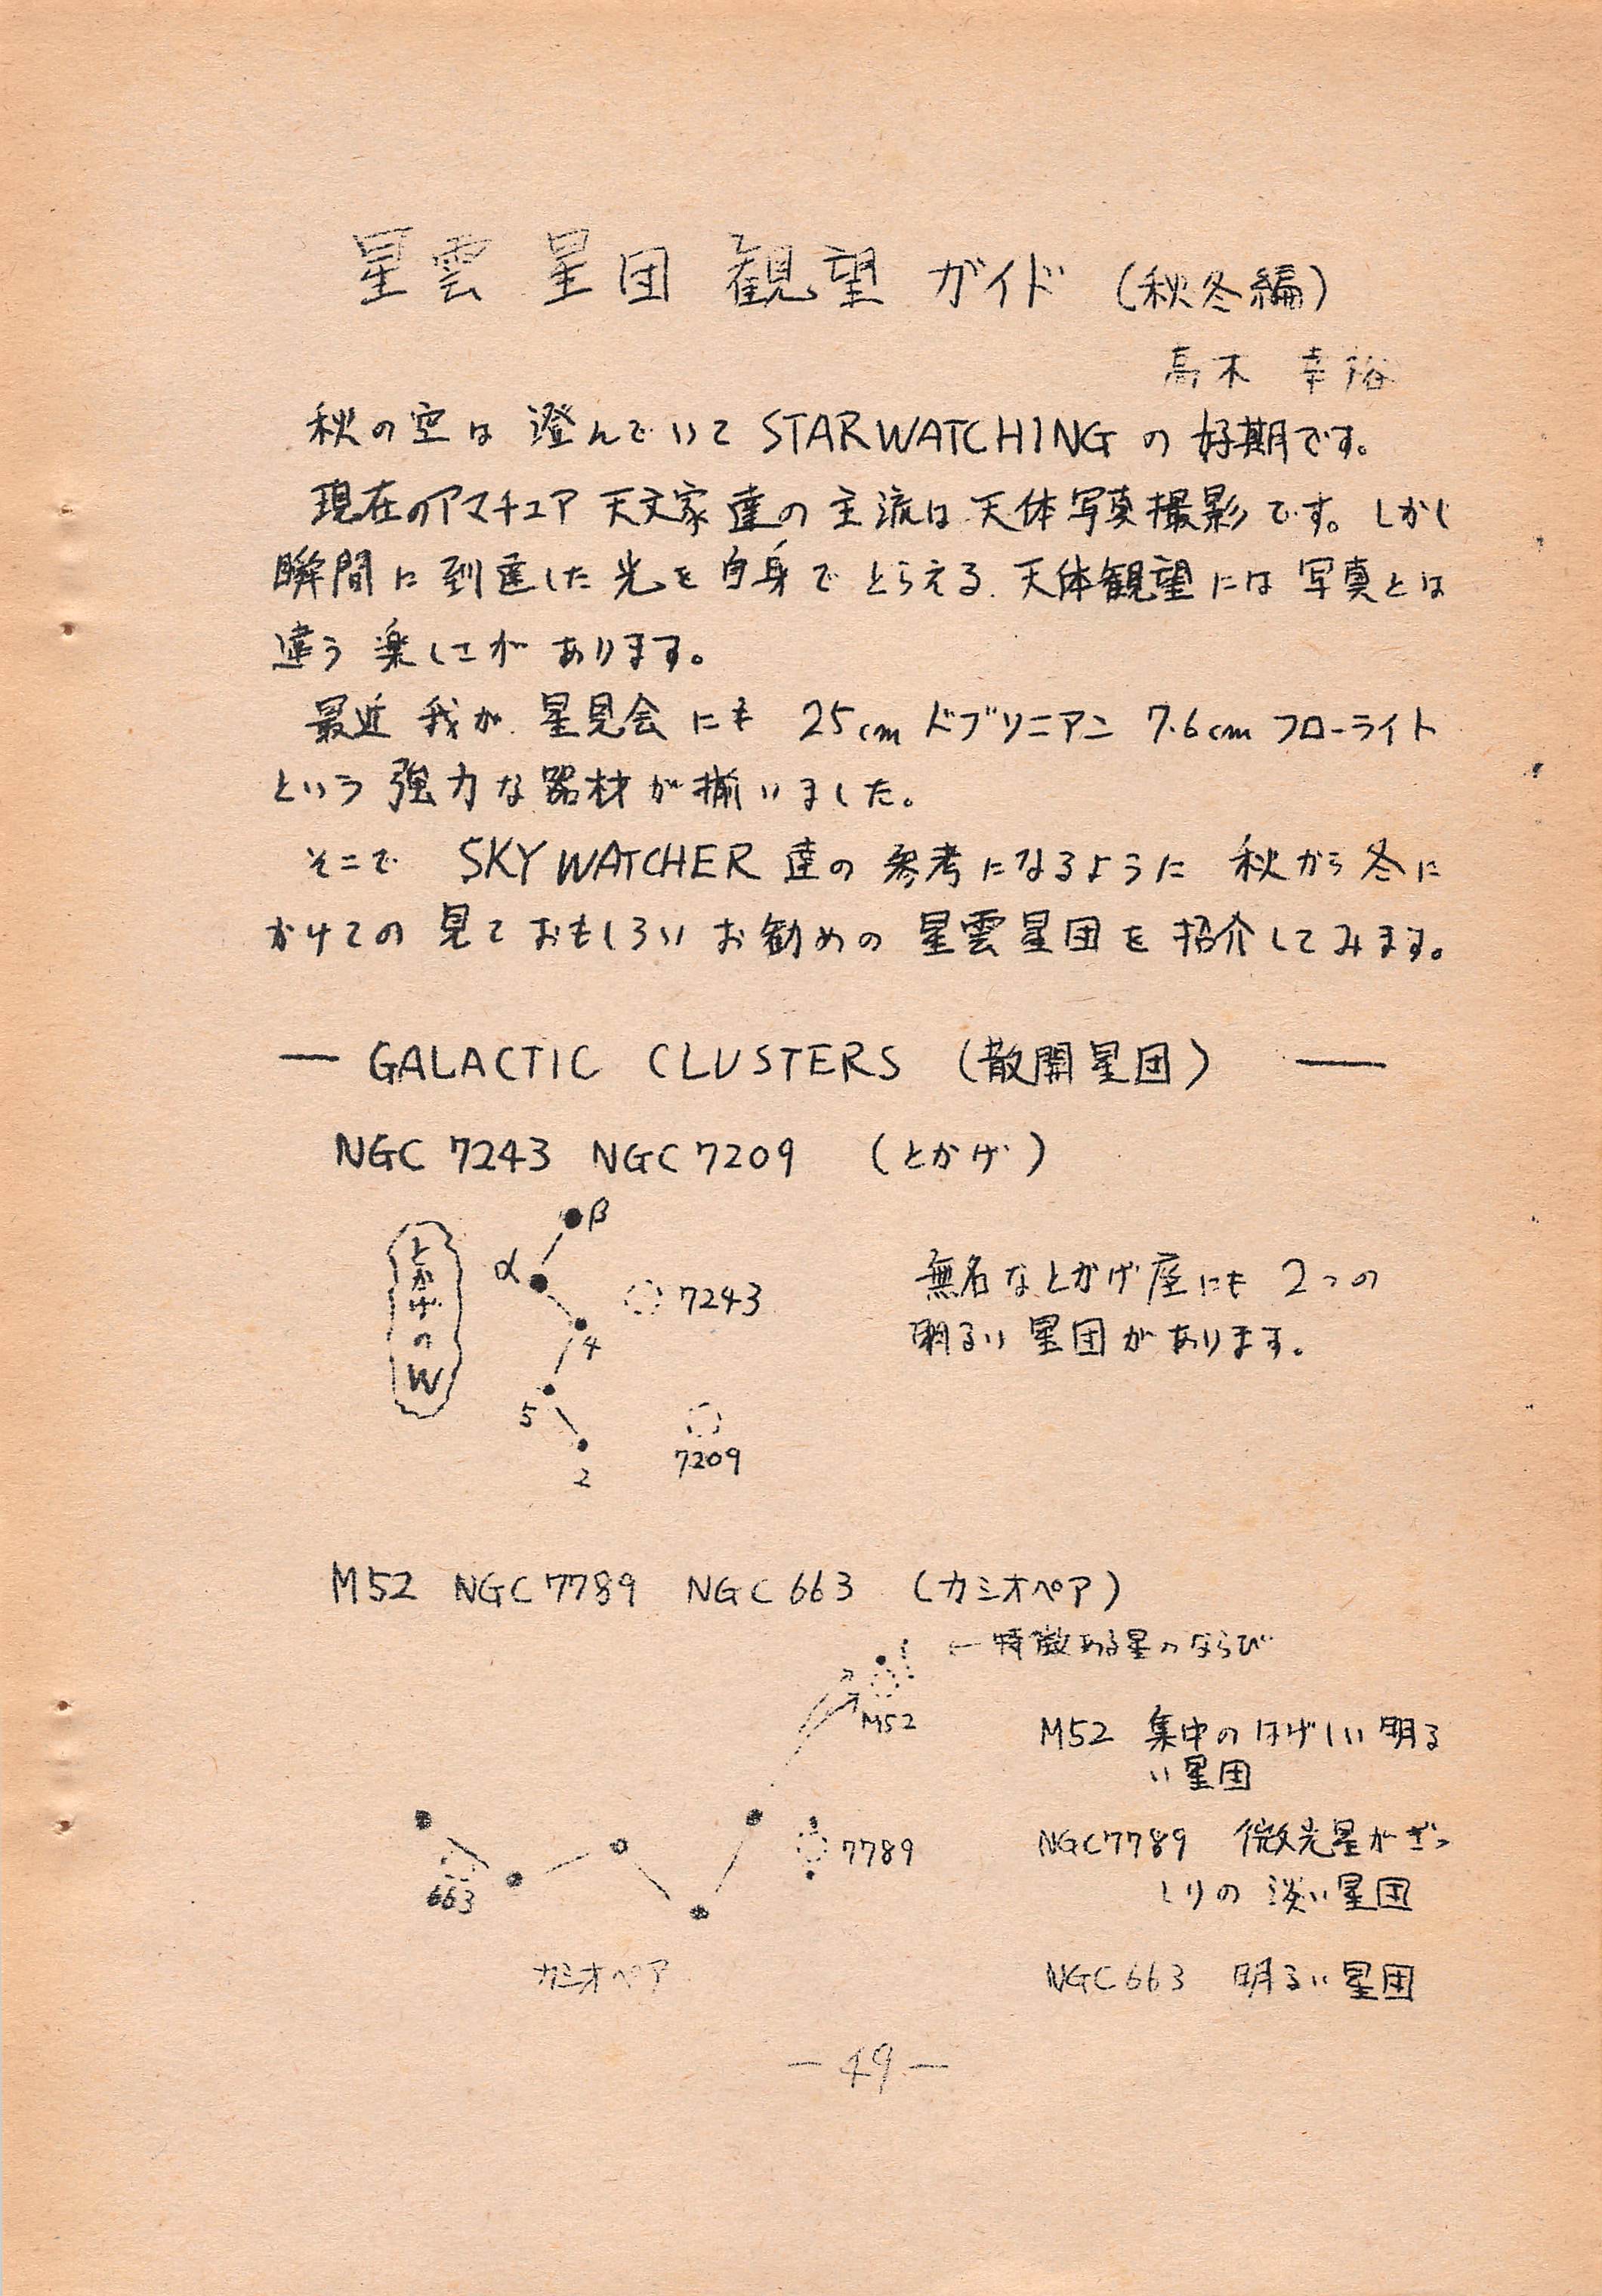 星雲 星団 観望 ガイド (秋冬編)
高木 幸裕
秋の空は 澄んでいて STARWATCHING の 好期です。
現在のアマチュア 天文家達の 主流は 天体写真撮影です。しかし
瞬間に 到達した 光を 自身で とらえる 天体観望には 写真とは
違う 楽しさが あります。
最近 我が 星見会にも 25cm ドブソニアン 7.6cm フローライト
という 強力な 器材が 揃いました。
そこで SKY WATCHER 達の 参考になるように 秋から冬に
かけての 見ておもしろい お勧めの 星雲星団を 紹介してみます。
― GALACTIC CLUSTERS (散開星団) ―
NGC 7243 NGC 7209 (とかげ)
とかげのW
β
α
7243
4
5
7209
2
無名なとかげ座にも 2つの
明るい 星団があります。
M52 NGC7789 NGC663 (カシオペア)
←特徴ある星のならび
M52
M52 集中のはげしい 明る
い星団
7789
663
NGC7789 微光星がぎっ
しりの 淡い星団
カシオペア
NGC663 明るい星団
―49―